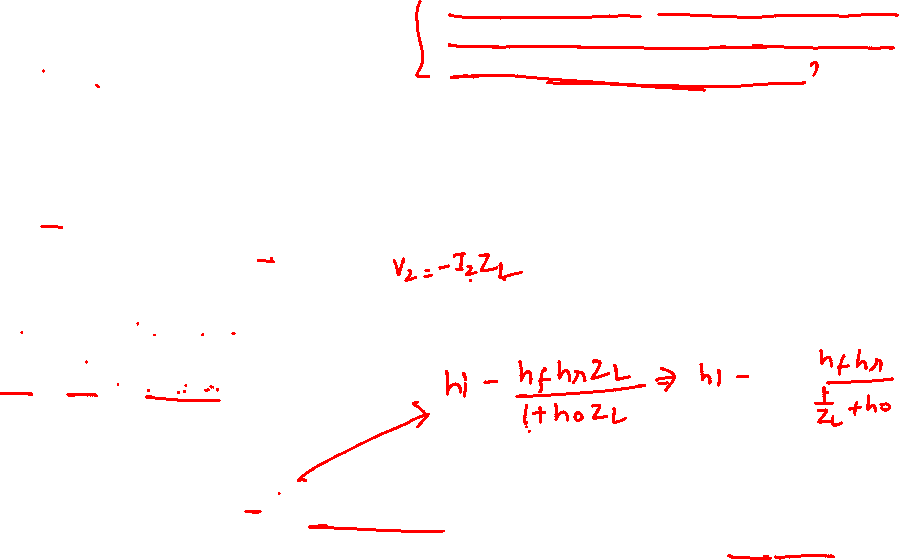 V₂ = -I₂Z_L
hi - \frac{h_f h_r Z_L}{1 + h_o Z_L} ⇒ hi - \frac{h_f h_r}{\frac{1}{Z_L} + h_o}